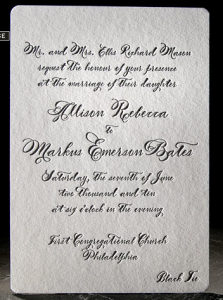 SE
Mr. and Mrs. Ellis Richard Mason
request the honour of your presence
at the marriage of their daughter
Allison Rebecca
to
Markus Emerson Bates
Saturday, the seventh of June
two thousand and ten
at six o'clock in the evening
First Congregational Church
Philadelphia
Black Tie